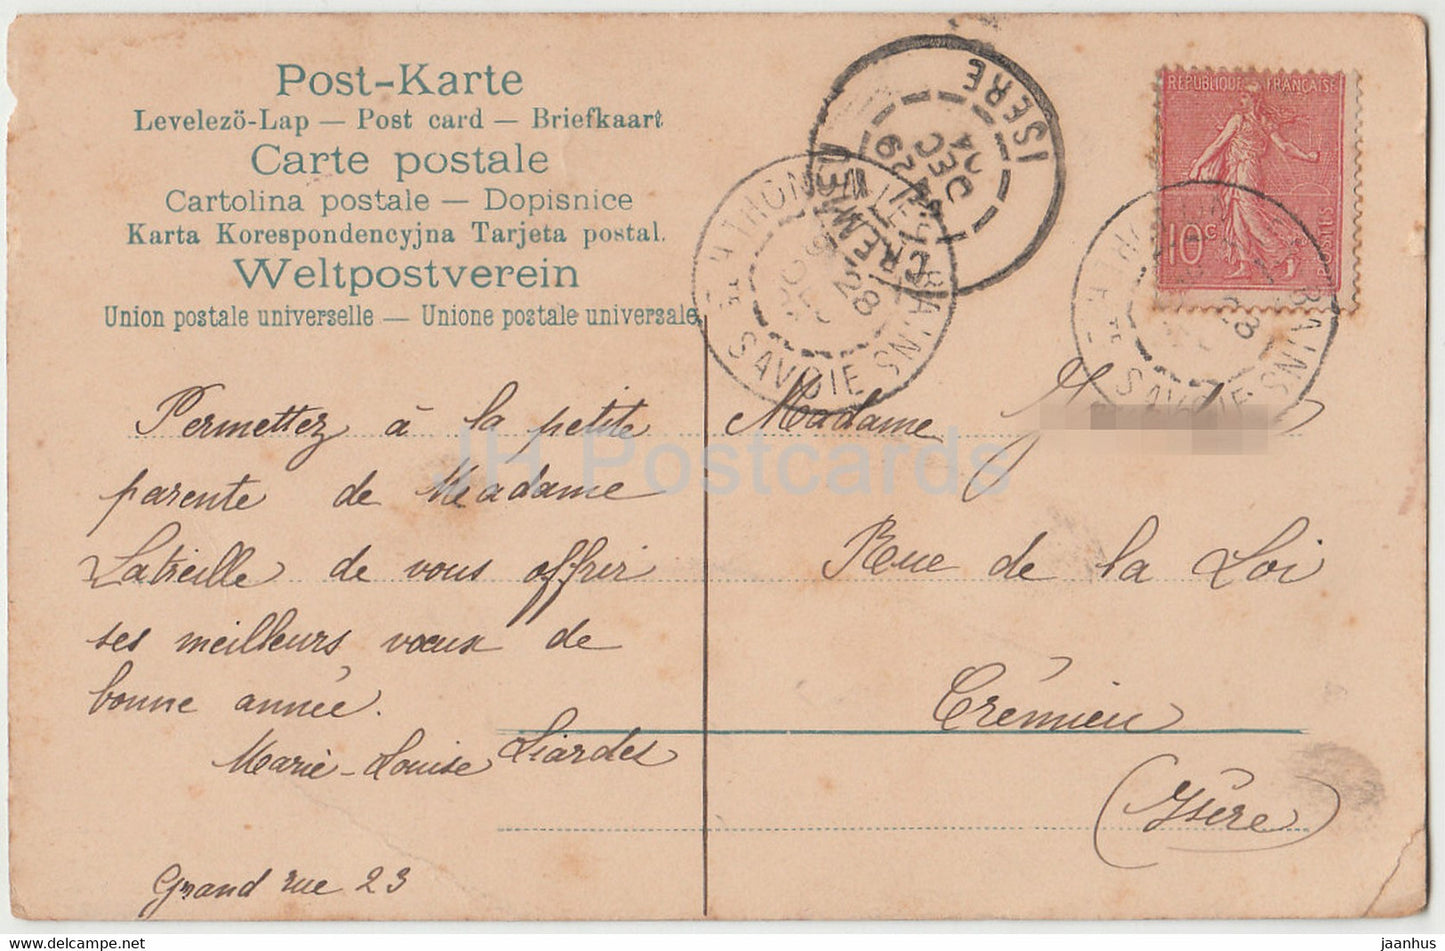 Post-Karte
Levelező-Lap — Post card — Briefkaart
Carte postale
Cartolina postale — Dopisnice
Karta Korespondencyjna Tarjeta postal.
Weltpostverein
Union postale universelle — Unione postale universale
REPUBLIQUE FRANÇAISE
10c
POSTES
CREMIEU
ISERE
29
DEC
04
THONON LES BAINS
28
Hte SAVOIE
BAINS
28
SAVOIE
Permettez à la petite
parente de Madame
Latreille de vous offrir
ses meilleurs vœux de
bonne année.
Marie-Louise Liardes
Grand rue 23
Madame
Rue de la Loi
Crémieu
(Isère)
JH Postcards
jaanhus